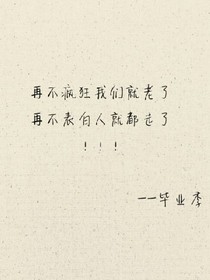 再不疯狂我们就老了
再不表白人就都走了
!!!
——毕业季